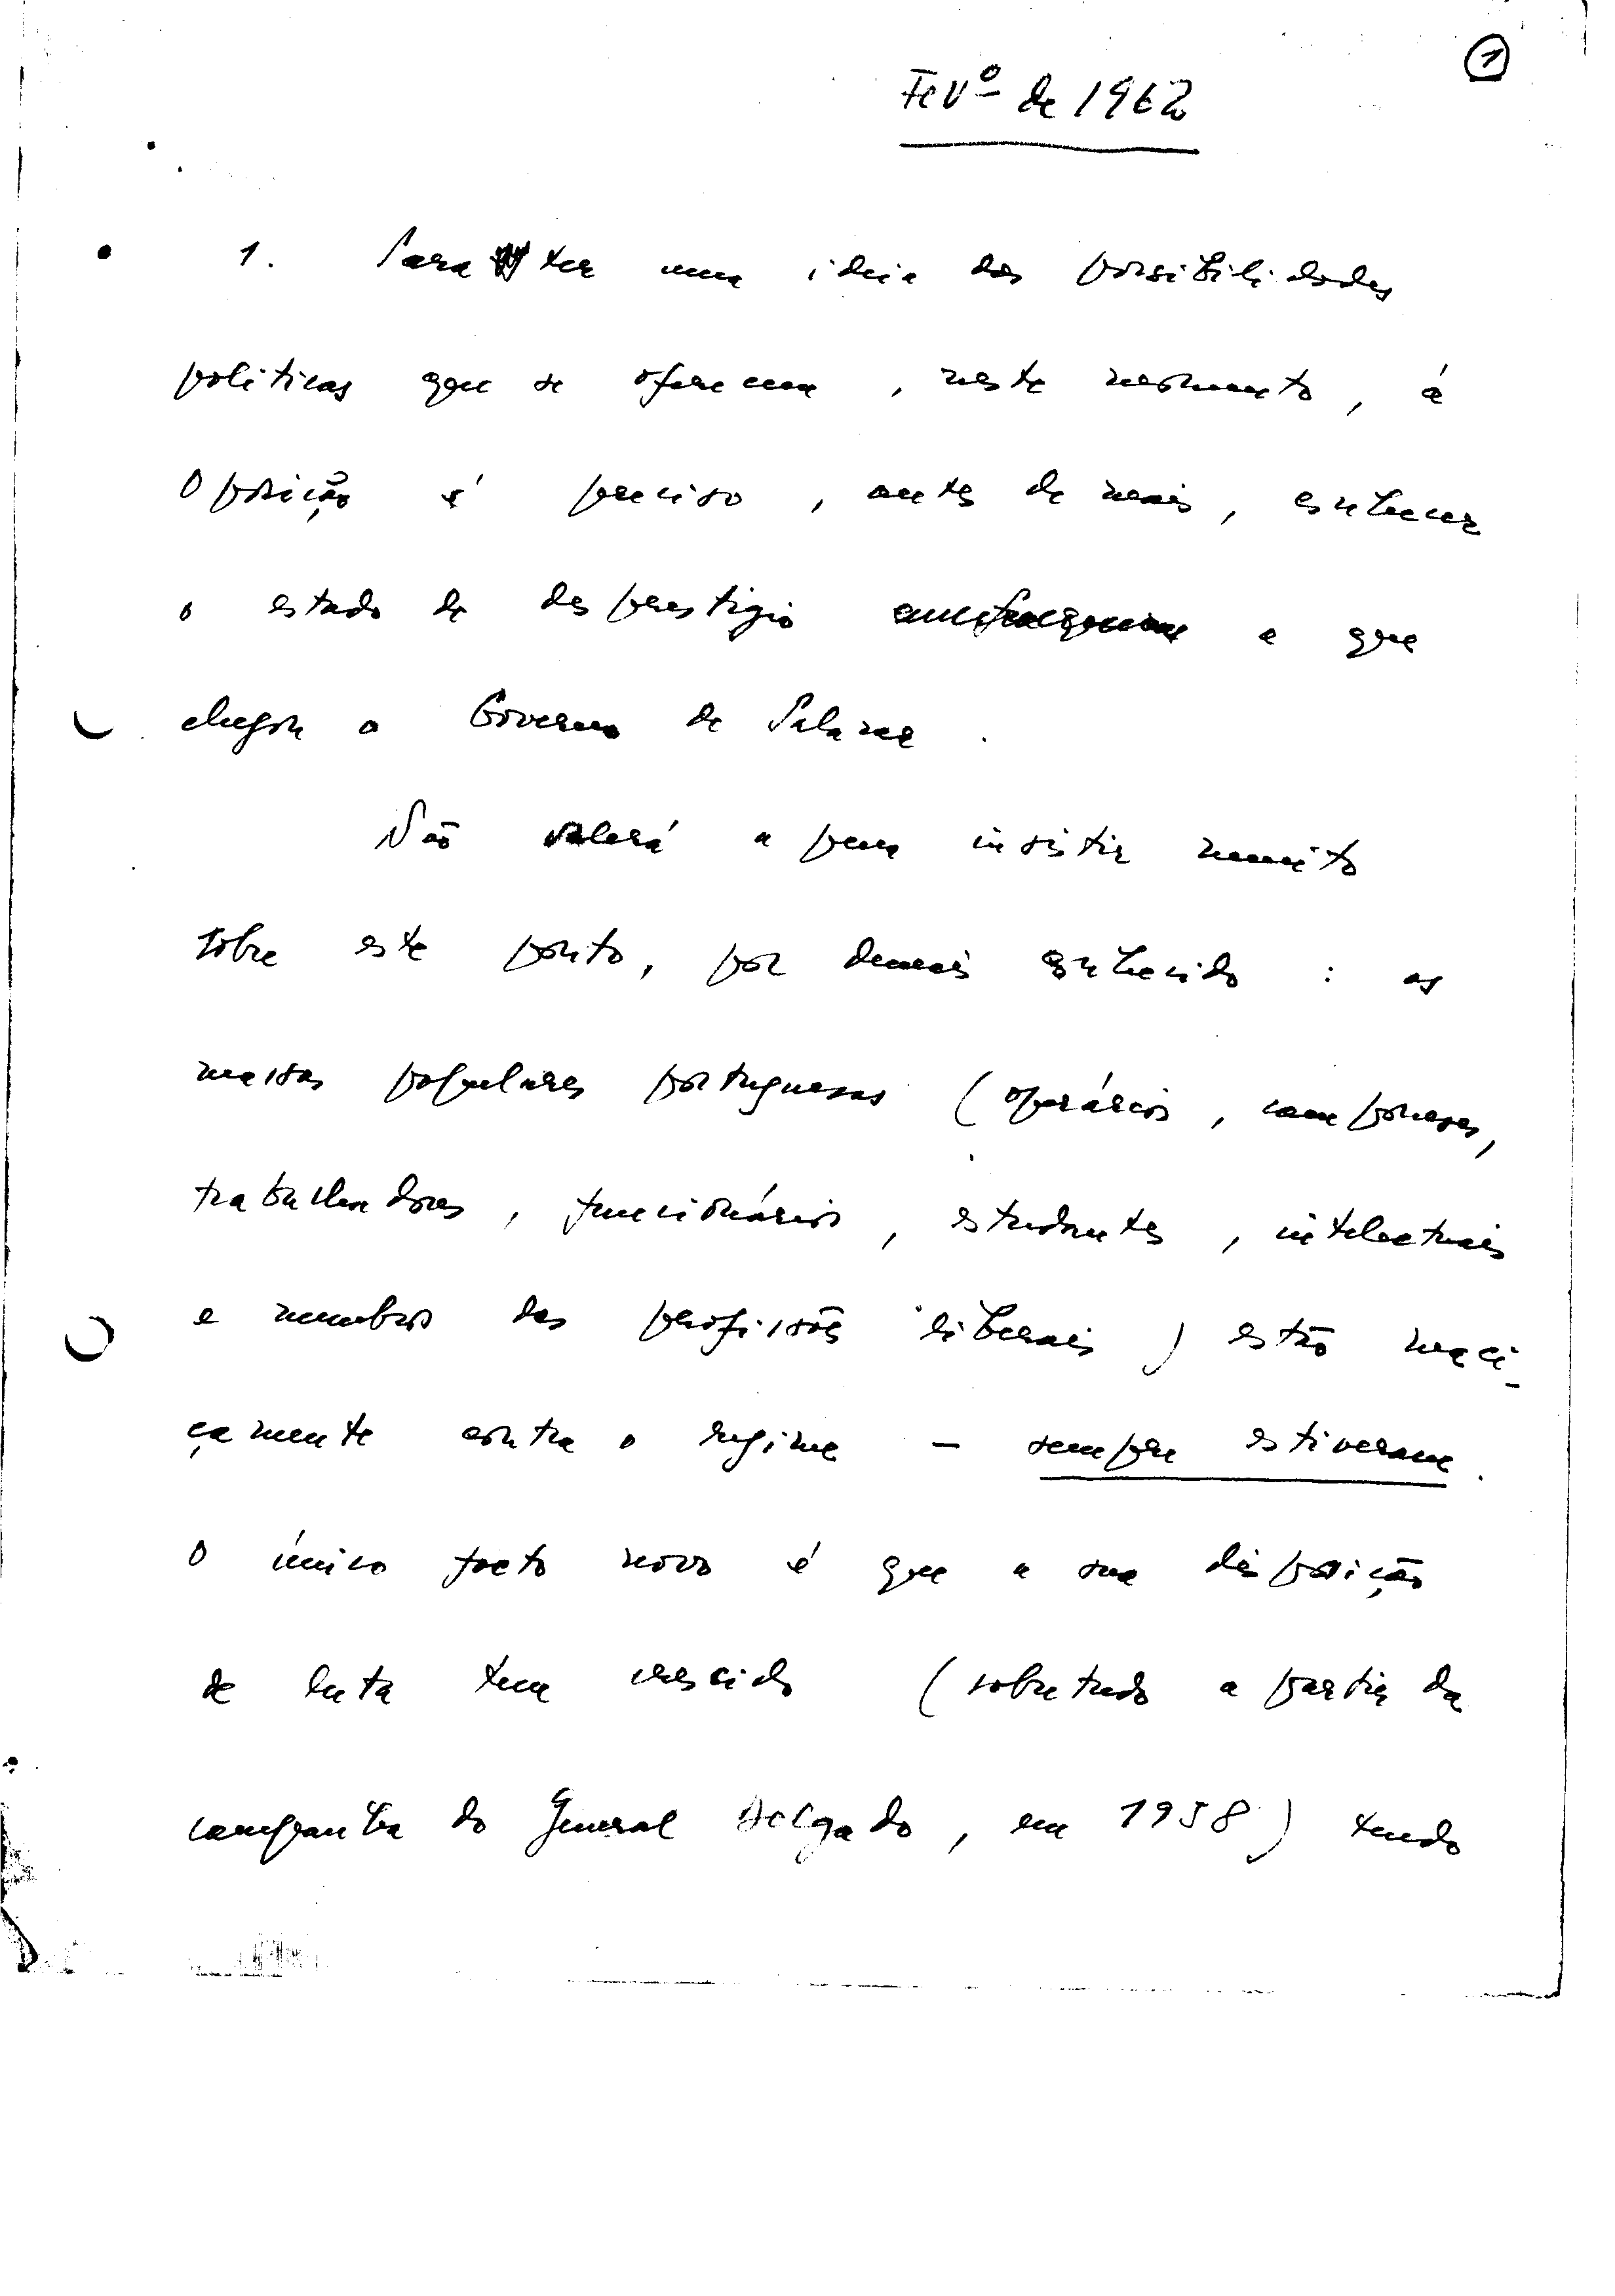 1
Fevº de 1962
1. Para ter uma ideia das possibilidades
politicas que se oferecem, neste momento, á
Oposição é preciso, antes de mais, conhecer
o estado de desprestigio a que
chegou o Governo de Salazar.
Não valerá a pena insistir muito
sobre este ponto, por demais conhecido: as
massas populares portuguesas (operários, camponeses,
trabalhadores, funcionários, estudantes, intelectuais
e membros das profissões liberais) estão maci-
çamente contra o regime - sempre estiveram.
O único facto novo é que a sua disposição
de luta tem crescido (sobretudo a partir da
campanha do General Delgado, em 1958) tendo